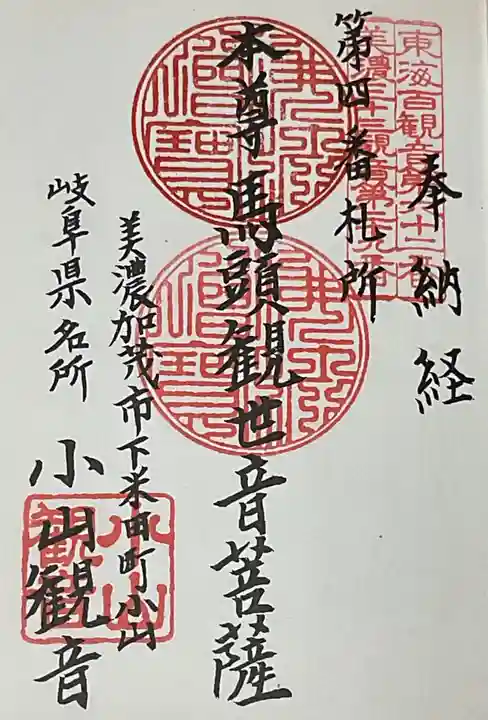 奉納経
第四番札所
本尊馬頭観世音菩薩
美濃加茂市下米田町小山
岐阜県名所
小山観音
東海百観音第六十二番
小山観音